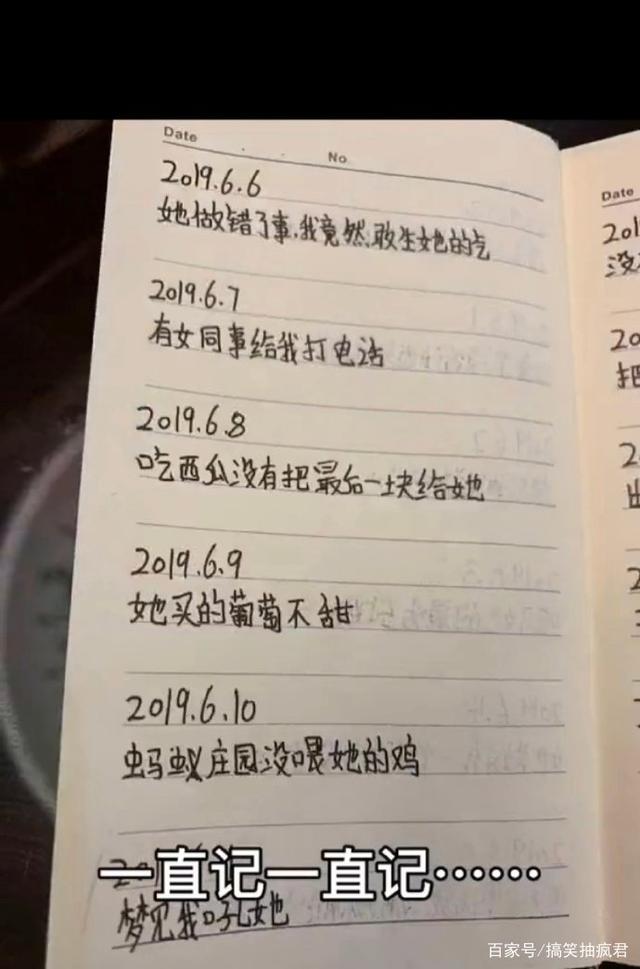 Date
No.
2019.6.6
她做错了事,我竟然敢生她的气
2019.6.7
有女同事给我打电话
2019.6.8
吃西瓜没有把最后一块给她
2019.6.9
她买的葡萄不甜
2019.6.10
蚂蚁庄园没喂她的鸡
一直记一直记……
梦见我吼她
Date
201
没
20
把
2
出
2
百家号/搞笑抽疯君